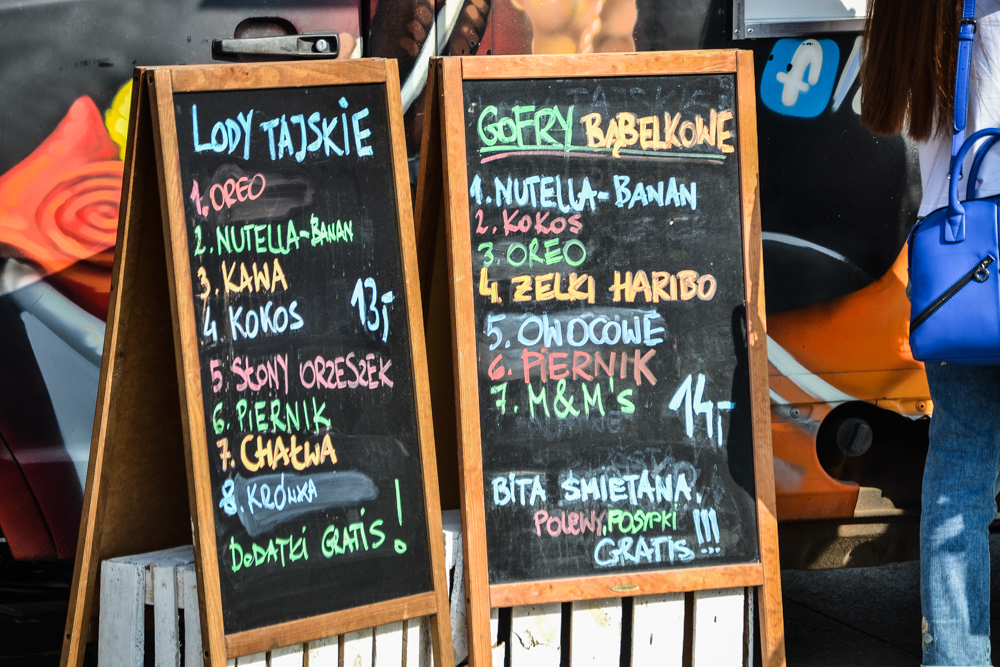 LODY TAJSKIE
1. OREO
2. NUTELLA-BANAN
3. KAWA
4 KOKOS
13,-
5. SŁONY ORZESZEK
6. PIERNIK
7. CHAŁWA
8. KRÓWKA
DODATKI GRATIS!
GOFRY BĄBELKOWE
1. NUTELLA-BANAN
2. KOKOS
3. OREO
4. ŻELKI HARIBO
5. OWOCOWE
6. PIERNIK
7. M&M's
14,-
BITA ŚMIETANA,
POLEWY, POSYPKI
GRATIS!!!
f